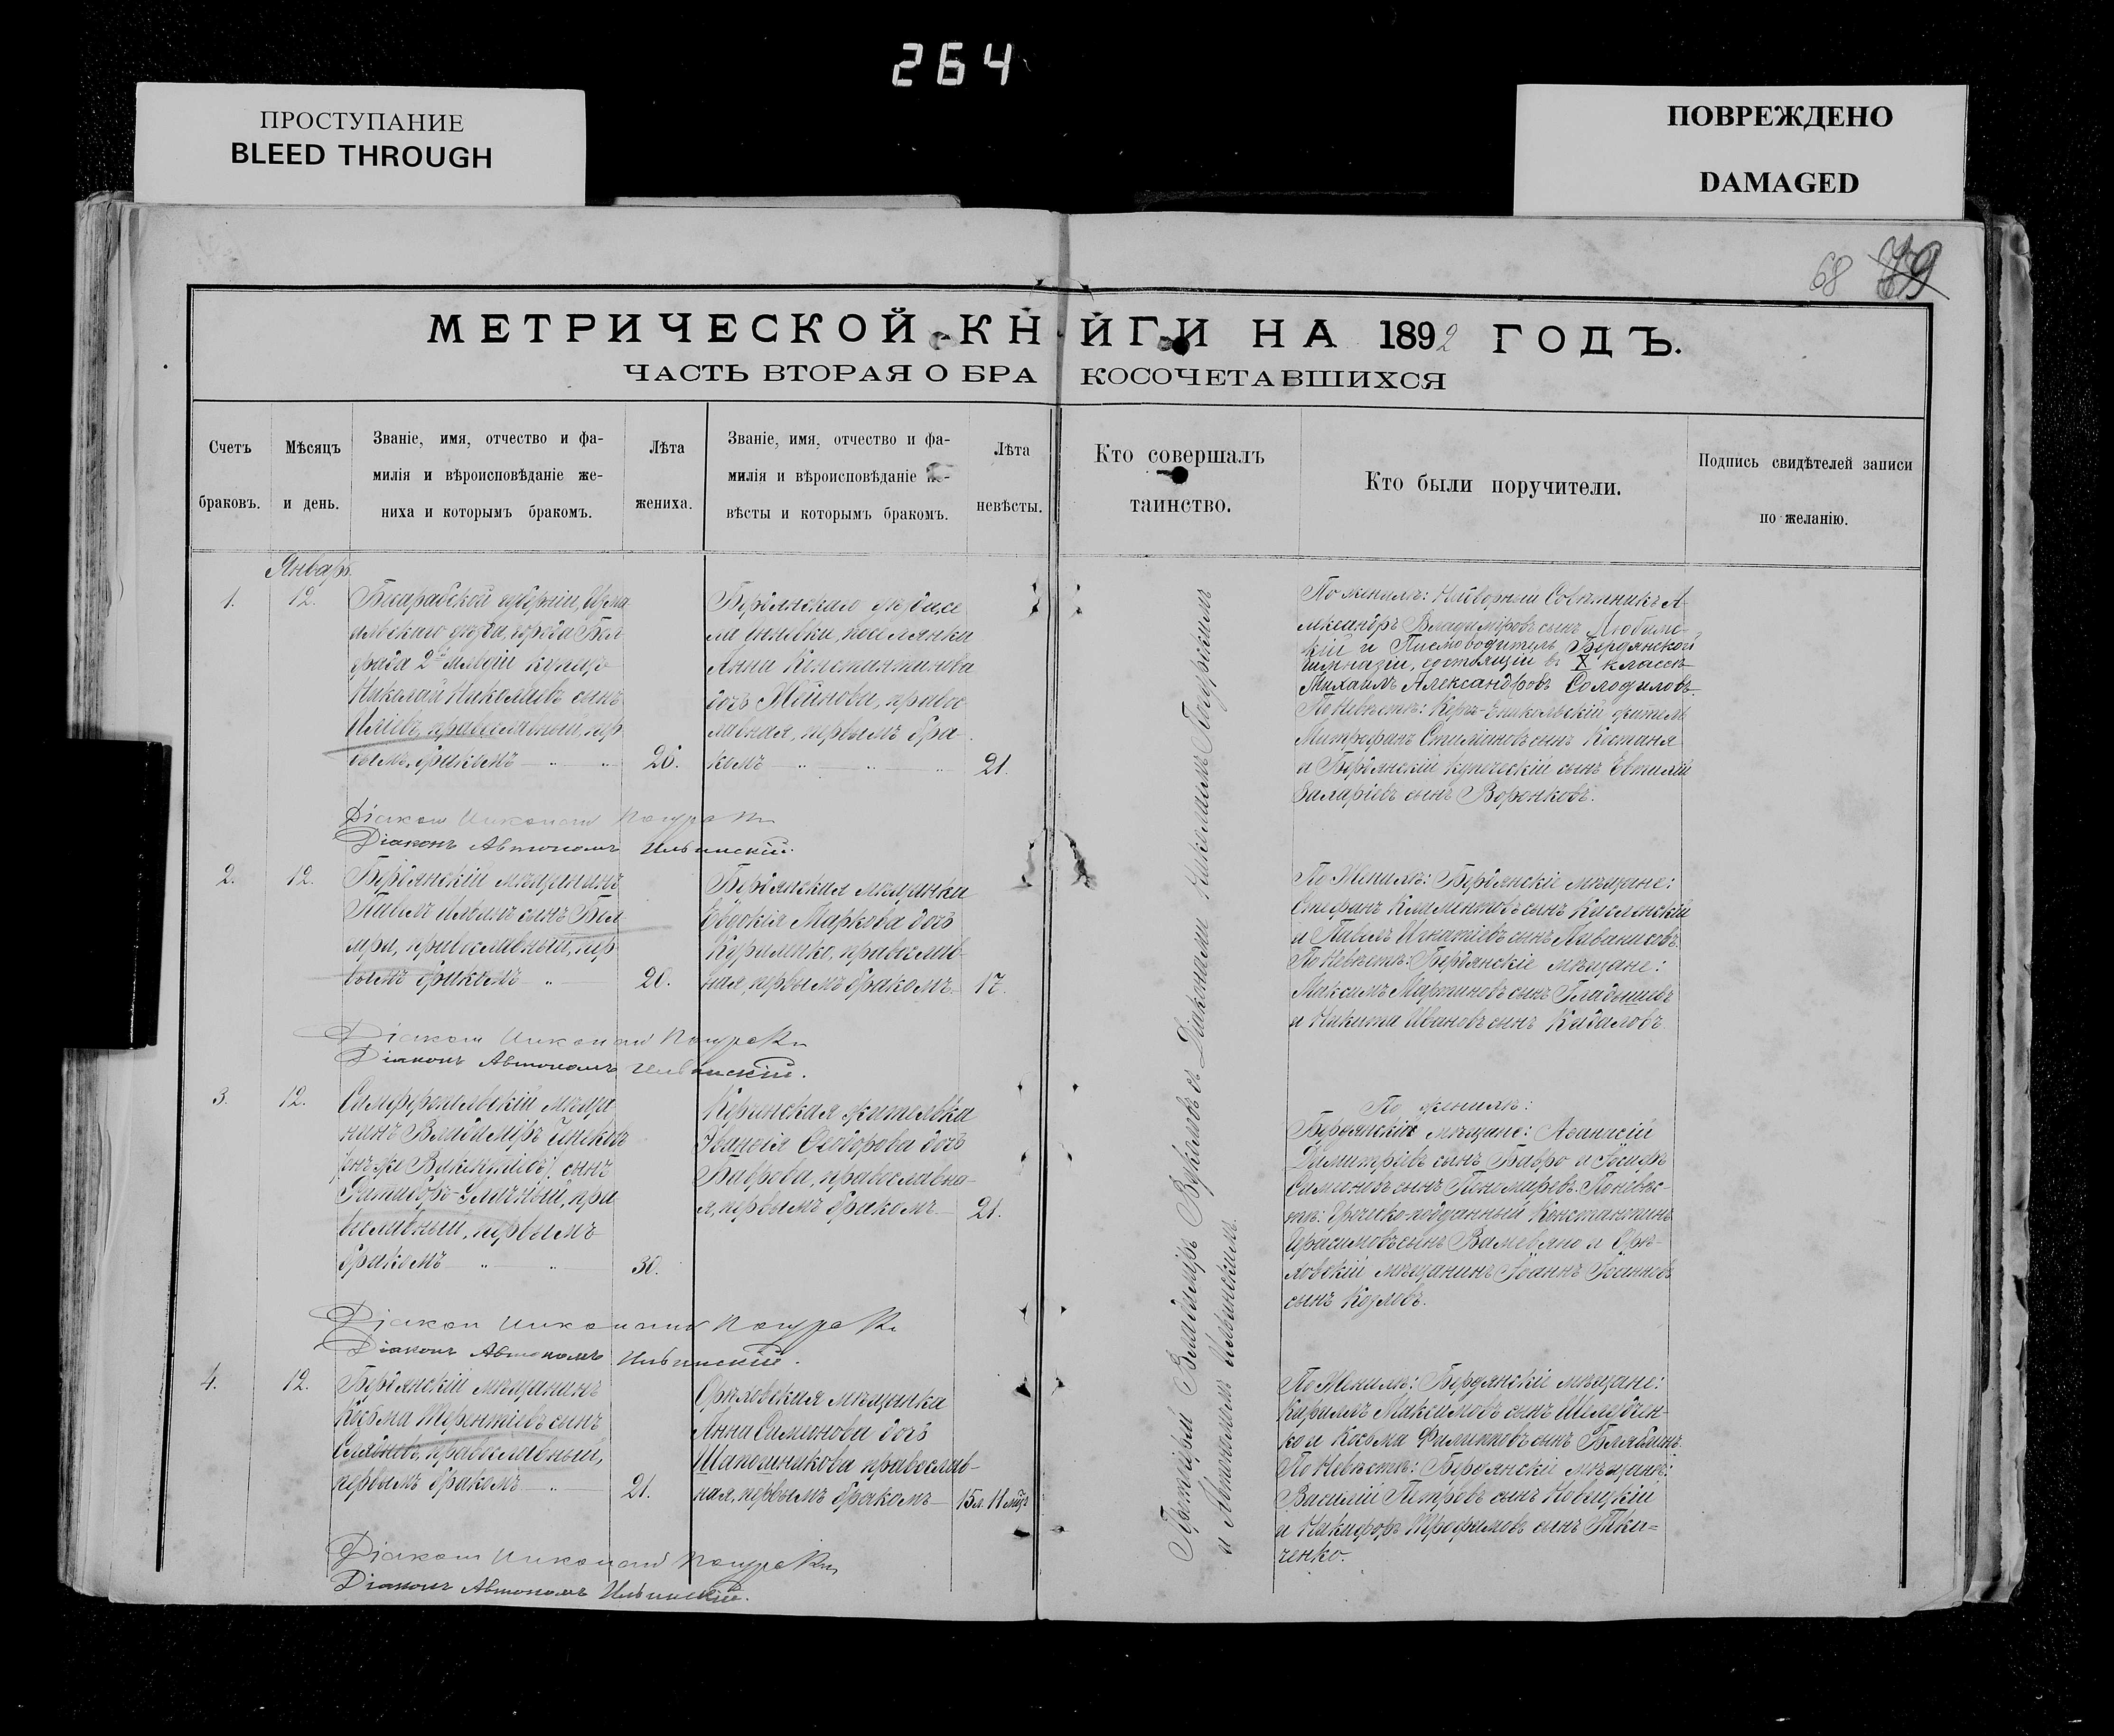 264
ПРОСТУПАНИЕ
BLEED THROUGH
ПОВРЕЖДЕНО
DAMAGED
68
МЕТРИЧЕСКОЙ КНИГИ НА 1892 ГОДЪ.
ЧАСТЬ ВТОРАЯ О БРАКОСОЧЕТАВШИХСЯ
Счетъ
браковъ.
Мѣсяцъ
и день.
Званіе, имя, отчество и фа-
милія и вѣроисповѣданіе же-
ниха и которымъ бракомъ.
Лѣта
жениха.
Званіе, имя, отчество и фа-
милія и вѣроисповѣданіе не-
вѣсты и которымъ бракомъ.
Лѣта
невѣсты.
Кто совершалъ
таинство.
Кто были поручители.
Подпись свидѣтелей записи
по желанію.
Январь.
1.
12.
Бесарабской губерніи, Изма
ильскаго уѣзда, города Бол
града 2й гильдіи купецъ
Николай Николаевъ сынъ
православный, пер
вымъ бракомъ
26.
Бердянскаго уѣзда се
ла поселянка
Анна Константинова
дочь правос
лавная, первымъ бра
комъ
21.
По женихѣ: Надворный Совѣтникъ А-
лександръ Владиміровъ сынъ
и Письмоводитель Бердянской
гимназіи, состоящій въ X классѣ
Михаилъ Александровъ Солодиловъ.
По Невѣстѣ: Керчь-Еникольскій житель
Митрофанъ сынъ
и Бердянскій купеческій сынъ
сынъ Воронковъ.
Діаконъ Николай
Діаконъ Автономъ Ильинскій.
2.
12.
Бердянскій мѣщанинъ
Павелъ сынъ
православный, пер
вымъ бракомъ
20.
Бердянская мѣщанка
Евдокія Маркова дочь
Куриленко, православ-
ная, первымъ бракомъ
17.
По Женихѣ: Бердянскіе мѣщане:
Стефанъ Климентовъ сынъ Кисленскій
и Павелъ Игнатіевъ сынъ
По Невѣстѣ: Бердянскіе мѣщане:
Максимъ Мартиновъ сынъ Гладышевъ
и Никита Ивановъ сынъ Кидаловъ.
Діаконъ Николай
Діаконъ Автономъ Ильинскій.
3.
12.
Симферопольскій мѣща
нинъ Владиміръ
(онъ же Викентіевъ) сынъ
пра
вославный, первымъ
бракомъ
30.
Керченская жителька
Ѳеодорова дочь
Баврова, православна-
я, первымъ бракомъ
21.
По женихѣ:
Бердянскіе мѣщане: Аѳанасій
Димитріевъ сынъ Бавро и Іосифъ
Симеоновъ сынъ Пономаревъ. По невѣс-
тѣ: Греческо-подданный Константинъ
Герасимовъ сынъ и Орѣ-
ховскій мѣщанинъ Іоаннъ Іоанновъ
сынъ Козловъ.
Діаконъ Николай
Діаконъ Автономъ Ильинскій.
4.
12.
Бердянскій мѣщанинъ
Косьма Терентіевъ сынъ
православный,
первымъ бракомъ
21.
Орѣховская мѣщанка
Анна Симеонова дочь
Шапошникова православ-
ная, первымъ бракомъ
15 л. 11 мѣс.
По Женихѣ: Бердянскіе мѣщане:
Кириллъ Максимовъ сынъ Шелудчен-
ко и Косьма Филиповъ сынъ
По Невѣстѣ: Бердянскіе мѣщане:
Василій Петровъ сынъ Новицкій
и Никифоръ Трофимовъ сынъ Тка-
ченко.
Діаконъ Николай
Діаконъ Автономъ Ильинскій.
Протоіерей Владиміръ съ Діаконами Николаемъ
и Автономомъ Ильинскимъ.